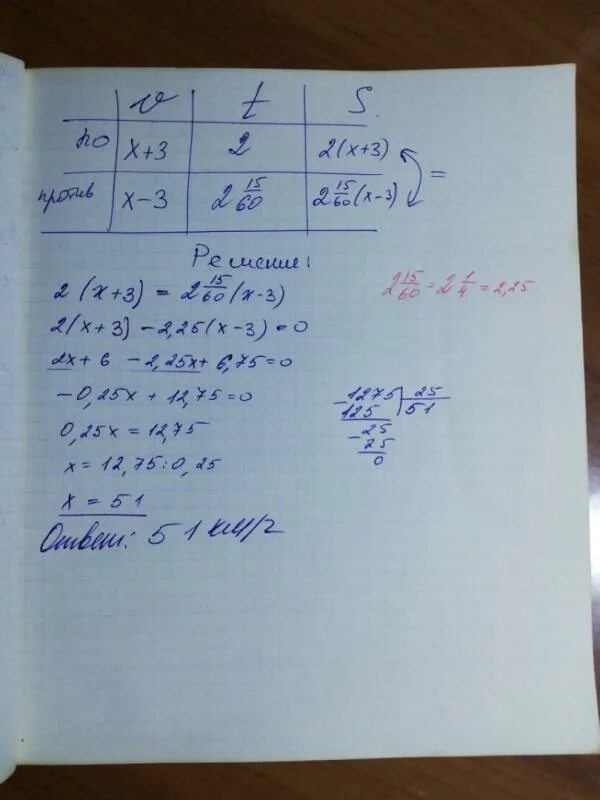 v t S.
по x+3 2 2(x+3)
против x-3 2 15/60 2 15/60 (x-3) =
Решение:
2(x+3) = 2 15/60 (x-3)
2 15/60 = 2 1/4 = 2,25
2(x+3) - 2,25(x-3) = 0
2x+6 - 2,25x + 6,75 = 0
-0,25x + 12,75 = 0
0,25x = 12,75
x = 12,75 : 0,25
x = 51
1275 25
125 51
25
25
0
Ответ: 51 км/г